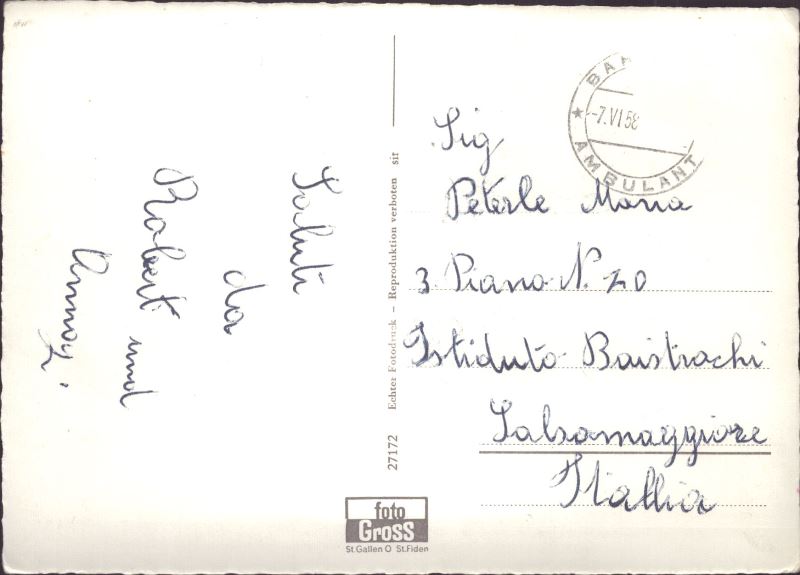 Saluti
da
Robert und
Annag.
27172 Echter Fotodruck – Reproduktion verboten sif
★ AMBULANT
-7.VI 58
Sig
Peterle Maria
3 Piano N. 20
Istiduto Baistrachi
Salsomaggiore
Itallia
foto
Gross
St.Gallen O St.Fiden